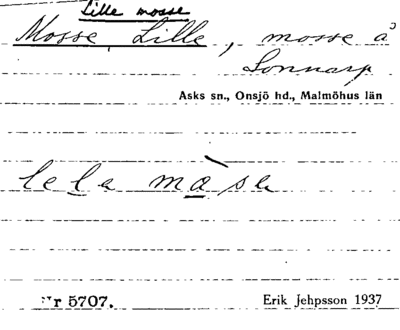 Lille mosse
Mosse, Lille, mosse å
Sonnarp
Asks sn., Onsjö hd., Malmöhus län
lela måsa
Nr 5707.
Erik Jehpsson 1937